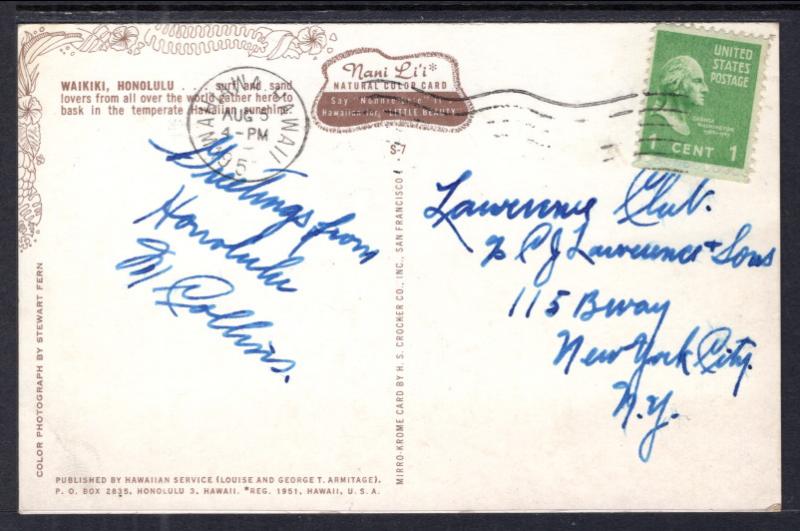 WAIKIKI, HONOLULU . . . surf and sand
lovers from all over the world gather here to
bask in the temperate Hawaiian sunshine.
Nani Li'i*
NATURAL COLOR CARD
Say "Nonnie-Lee-ee" It's
Hawaiian for LITTLE BEAUTY
S-7
HAWAII
AUG 5
4-PM
195
UNITED
STATES
POSTAGE
GEORGE
WASHINGTON
1 CENT 1
Greetings from
Honolulu
M Collins.
Lawrence Club.
% C J Lawrence & Sons
115 Bway
New York City.
N.Y.
COLOR PHOTOGRAPH BY STEWART FERN
MIRRO-KROME CARD BY H. S. CROCKER CO., INC., SAN FRANCISCO
PUBLISHED BY HAWAIIAN SERVICE (LOUISE AND GEORGE T. ARMITAGE).
P. O. BOX 2835, HONOLULU 3, HAWAII. *REG. 1951, HAWAII, U.S.A.